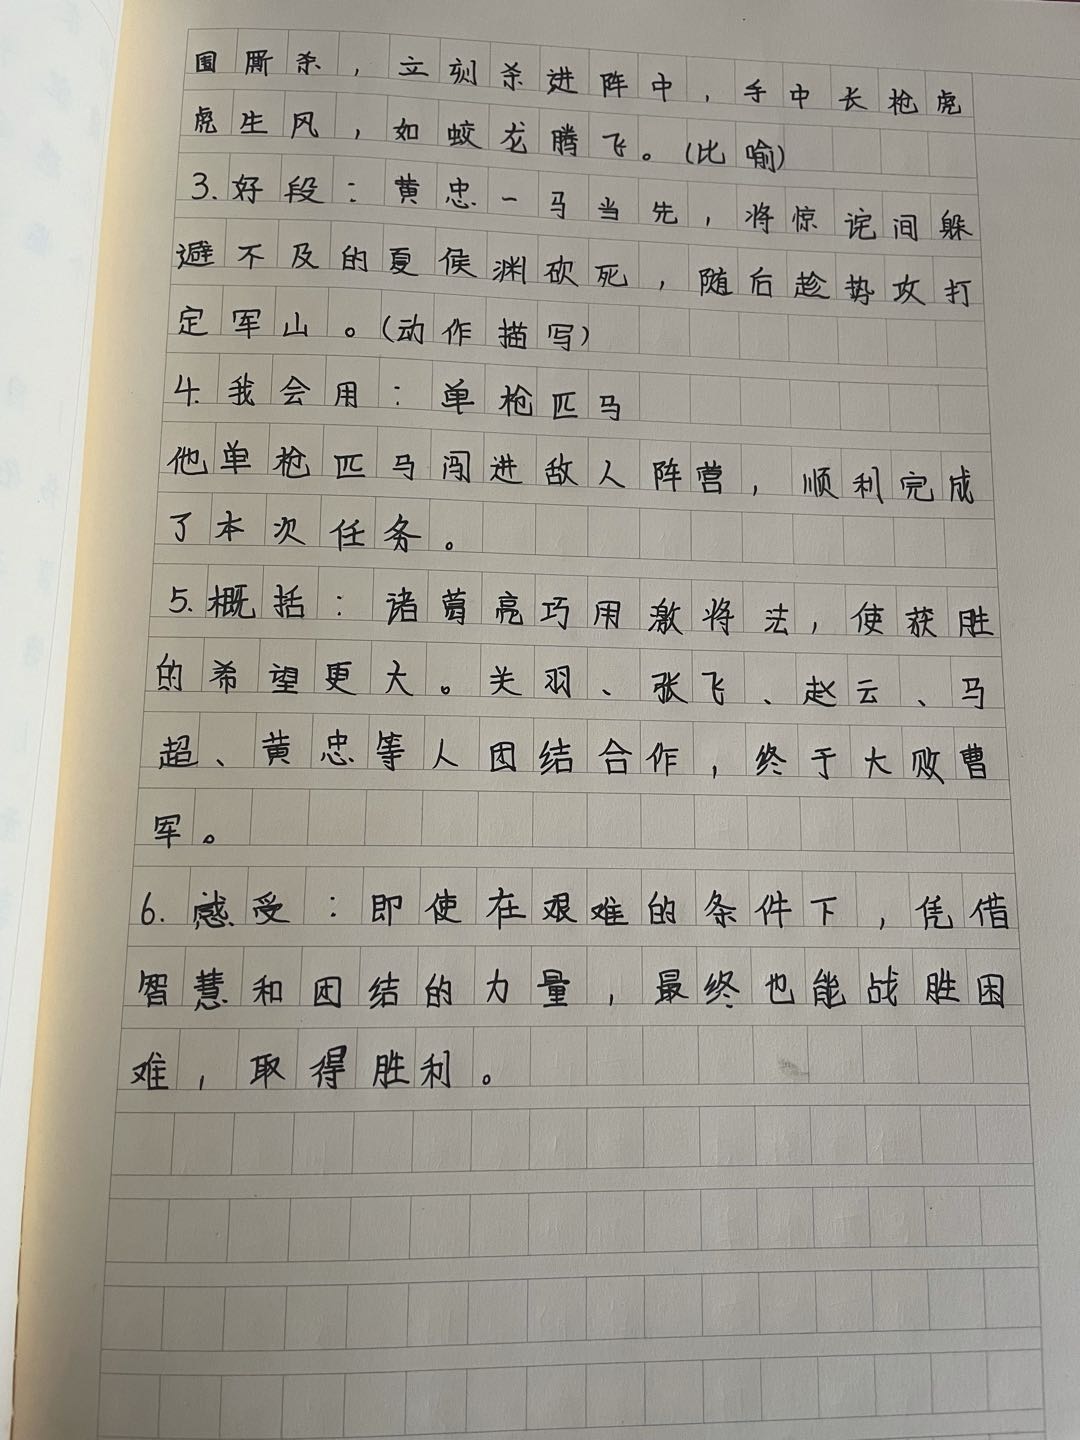 围厮杀，立刻杀进阵中，手中长枪虎
虎生风，如蛟龙腾飞。(比喻)
3.好段：黄忠一马当先，将惊诧间躲
避不及的夏侯渊砍死，随后趁势攻打
定军山。(动作描写)
4.我会用：单枪匹马
他单枪匹马闯进敌人阵营，顺利完成
了本次任务。
5.概括：诸葛亮巧用激将法，使获胜
的希望更大。关羽、张飞、赵云、马
超、黄忠等人团结合作，终于大败曹
军。
6.感受：即使在艰难的条件下，凭借
智慧和团结的力量，最终也能战胜困
难，取得胜利。